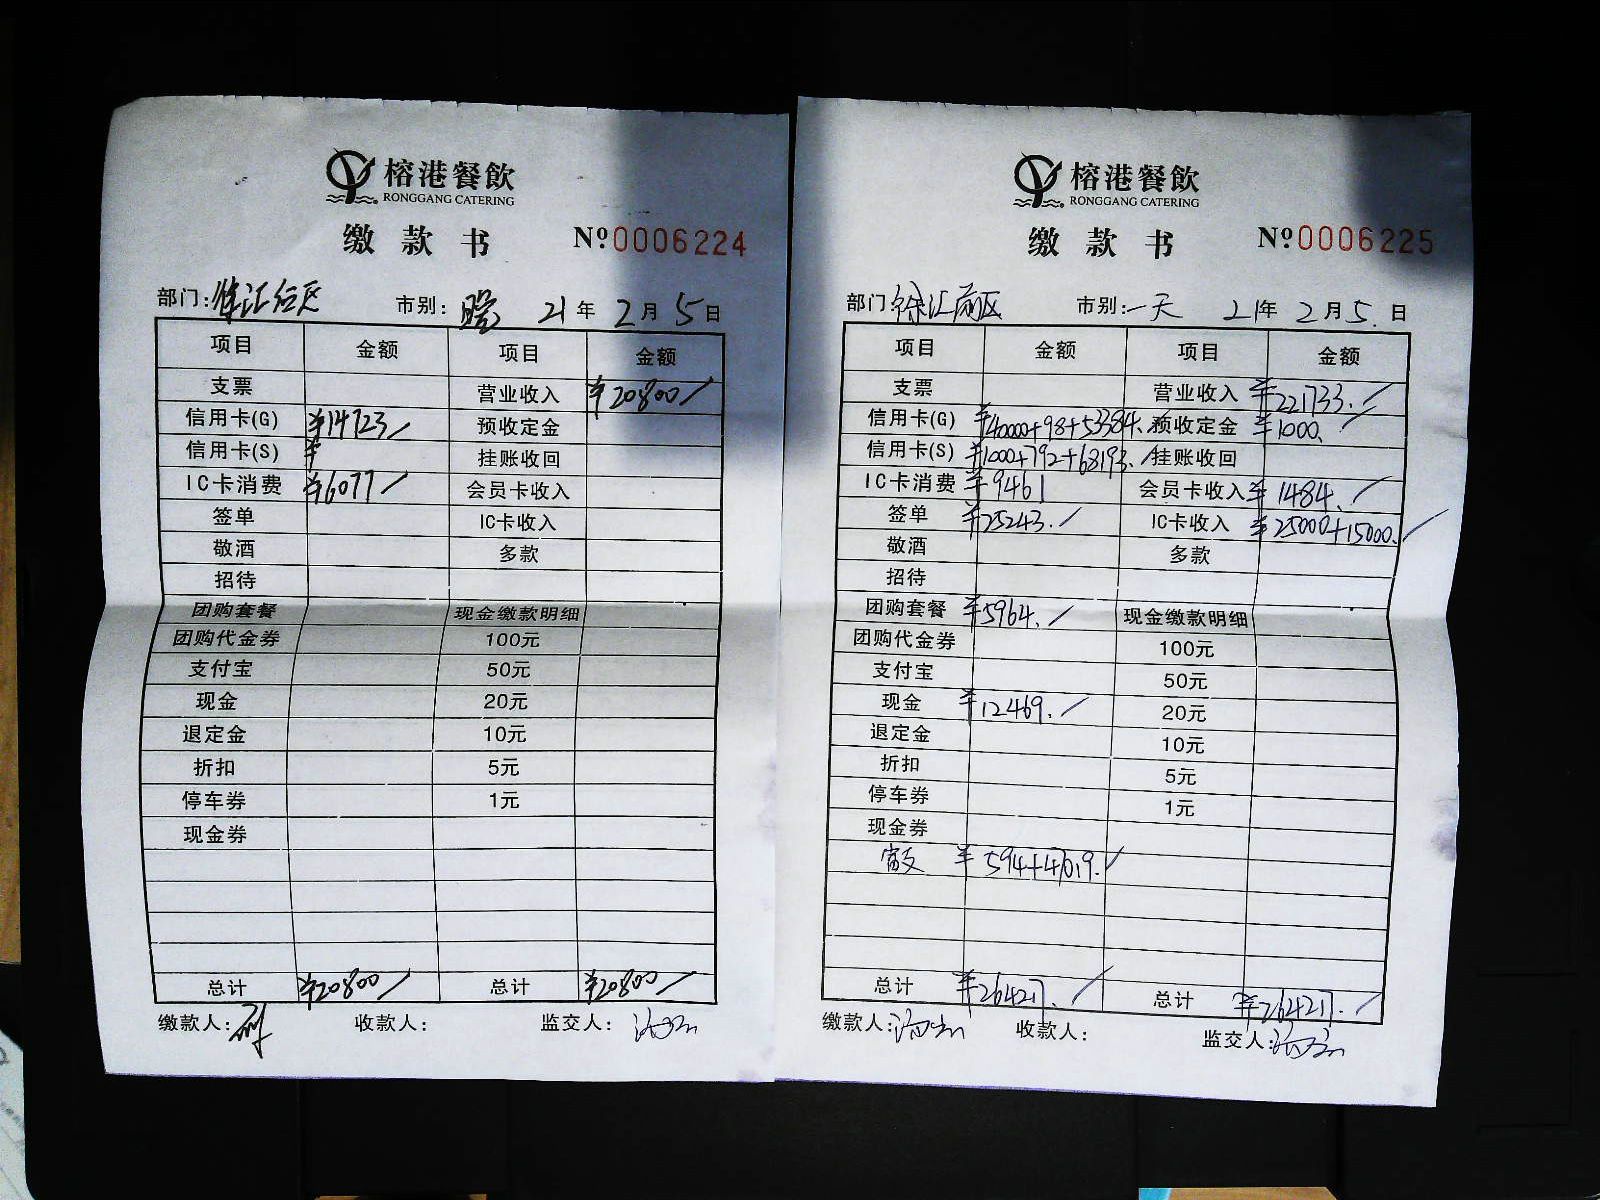 榕港餐飲
RONGGANG CATERING
缴款书 №0006224
部门: 徐汇后区 市别: 21年2月5日
项目 金额 项目 金额
支票 营业收入 ¥20800
信用卡(G) ¥14723 预收定金
信用卡(S) ¥ 挂账收回
IC卡消费 ¥6077 会员卡收入
签单 IC卡收入
敬酒 多款
招待
团购套餐 现金缴款明细
团购代金券 100元
支付宝 50元
现金 20元
退定金 10元
折扣 5元
停车券 1元
现金券
总计 ¥20800 总计 ¥20800
缴款人: 收款人: 监交人:
榕港餐飲
RONGGANG CATERING
缴款书 №0006225
部门: 徐汇前区 市别: 一天 21年2月5日
项目 金额 项目 金额
支票 营业收入 ¥221733.
信用卡(G) ¥40000+98+53384. 预收定金 ¥1000.
信用卡(S) ¥1000+792+68193. 挂账收回
IC卡消费 ¥9461 会员卡收入 ¥1484.
签单 ¥25243. IC卡收入 ¥25000+15000.
敬酒 多款
招待
团购套餐 ¥5964. 现金缴款明细
团购代金券 100元
支付宝 50元
现金 ¥12469. 20元
退定金 10元
折扣 5元
停车券 1元
现金券
¥594+47019.
总计 ¥264217. 总计 ¥264217.
缴款人: 收款人: 监交人: